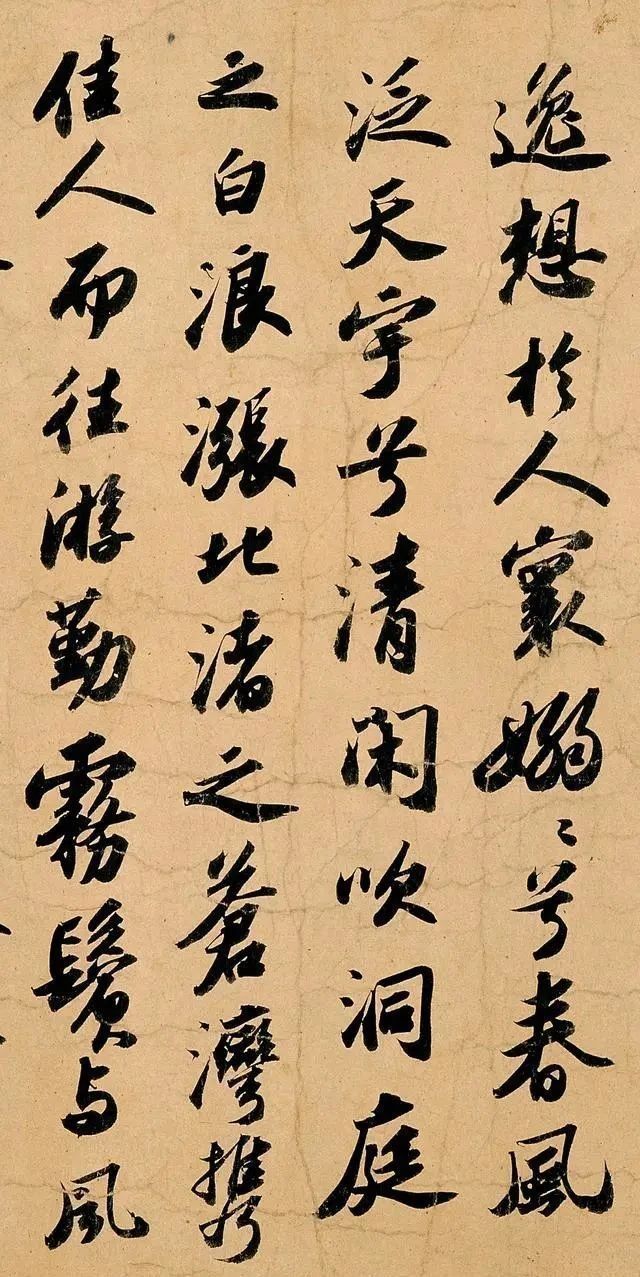 逸想於人寰嫋〻兮春風
泛天宇兮清閑吹洞庭
之白浪漲北渚之蒼灣携
佳人而往游勤霧鬢与風